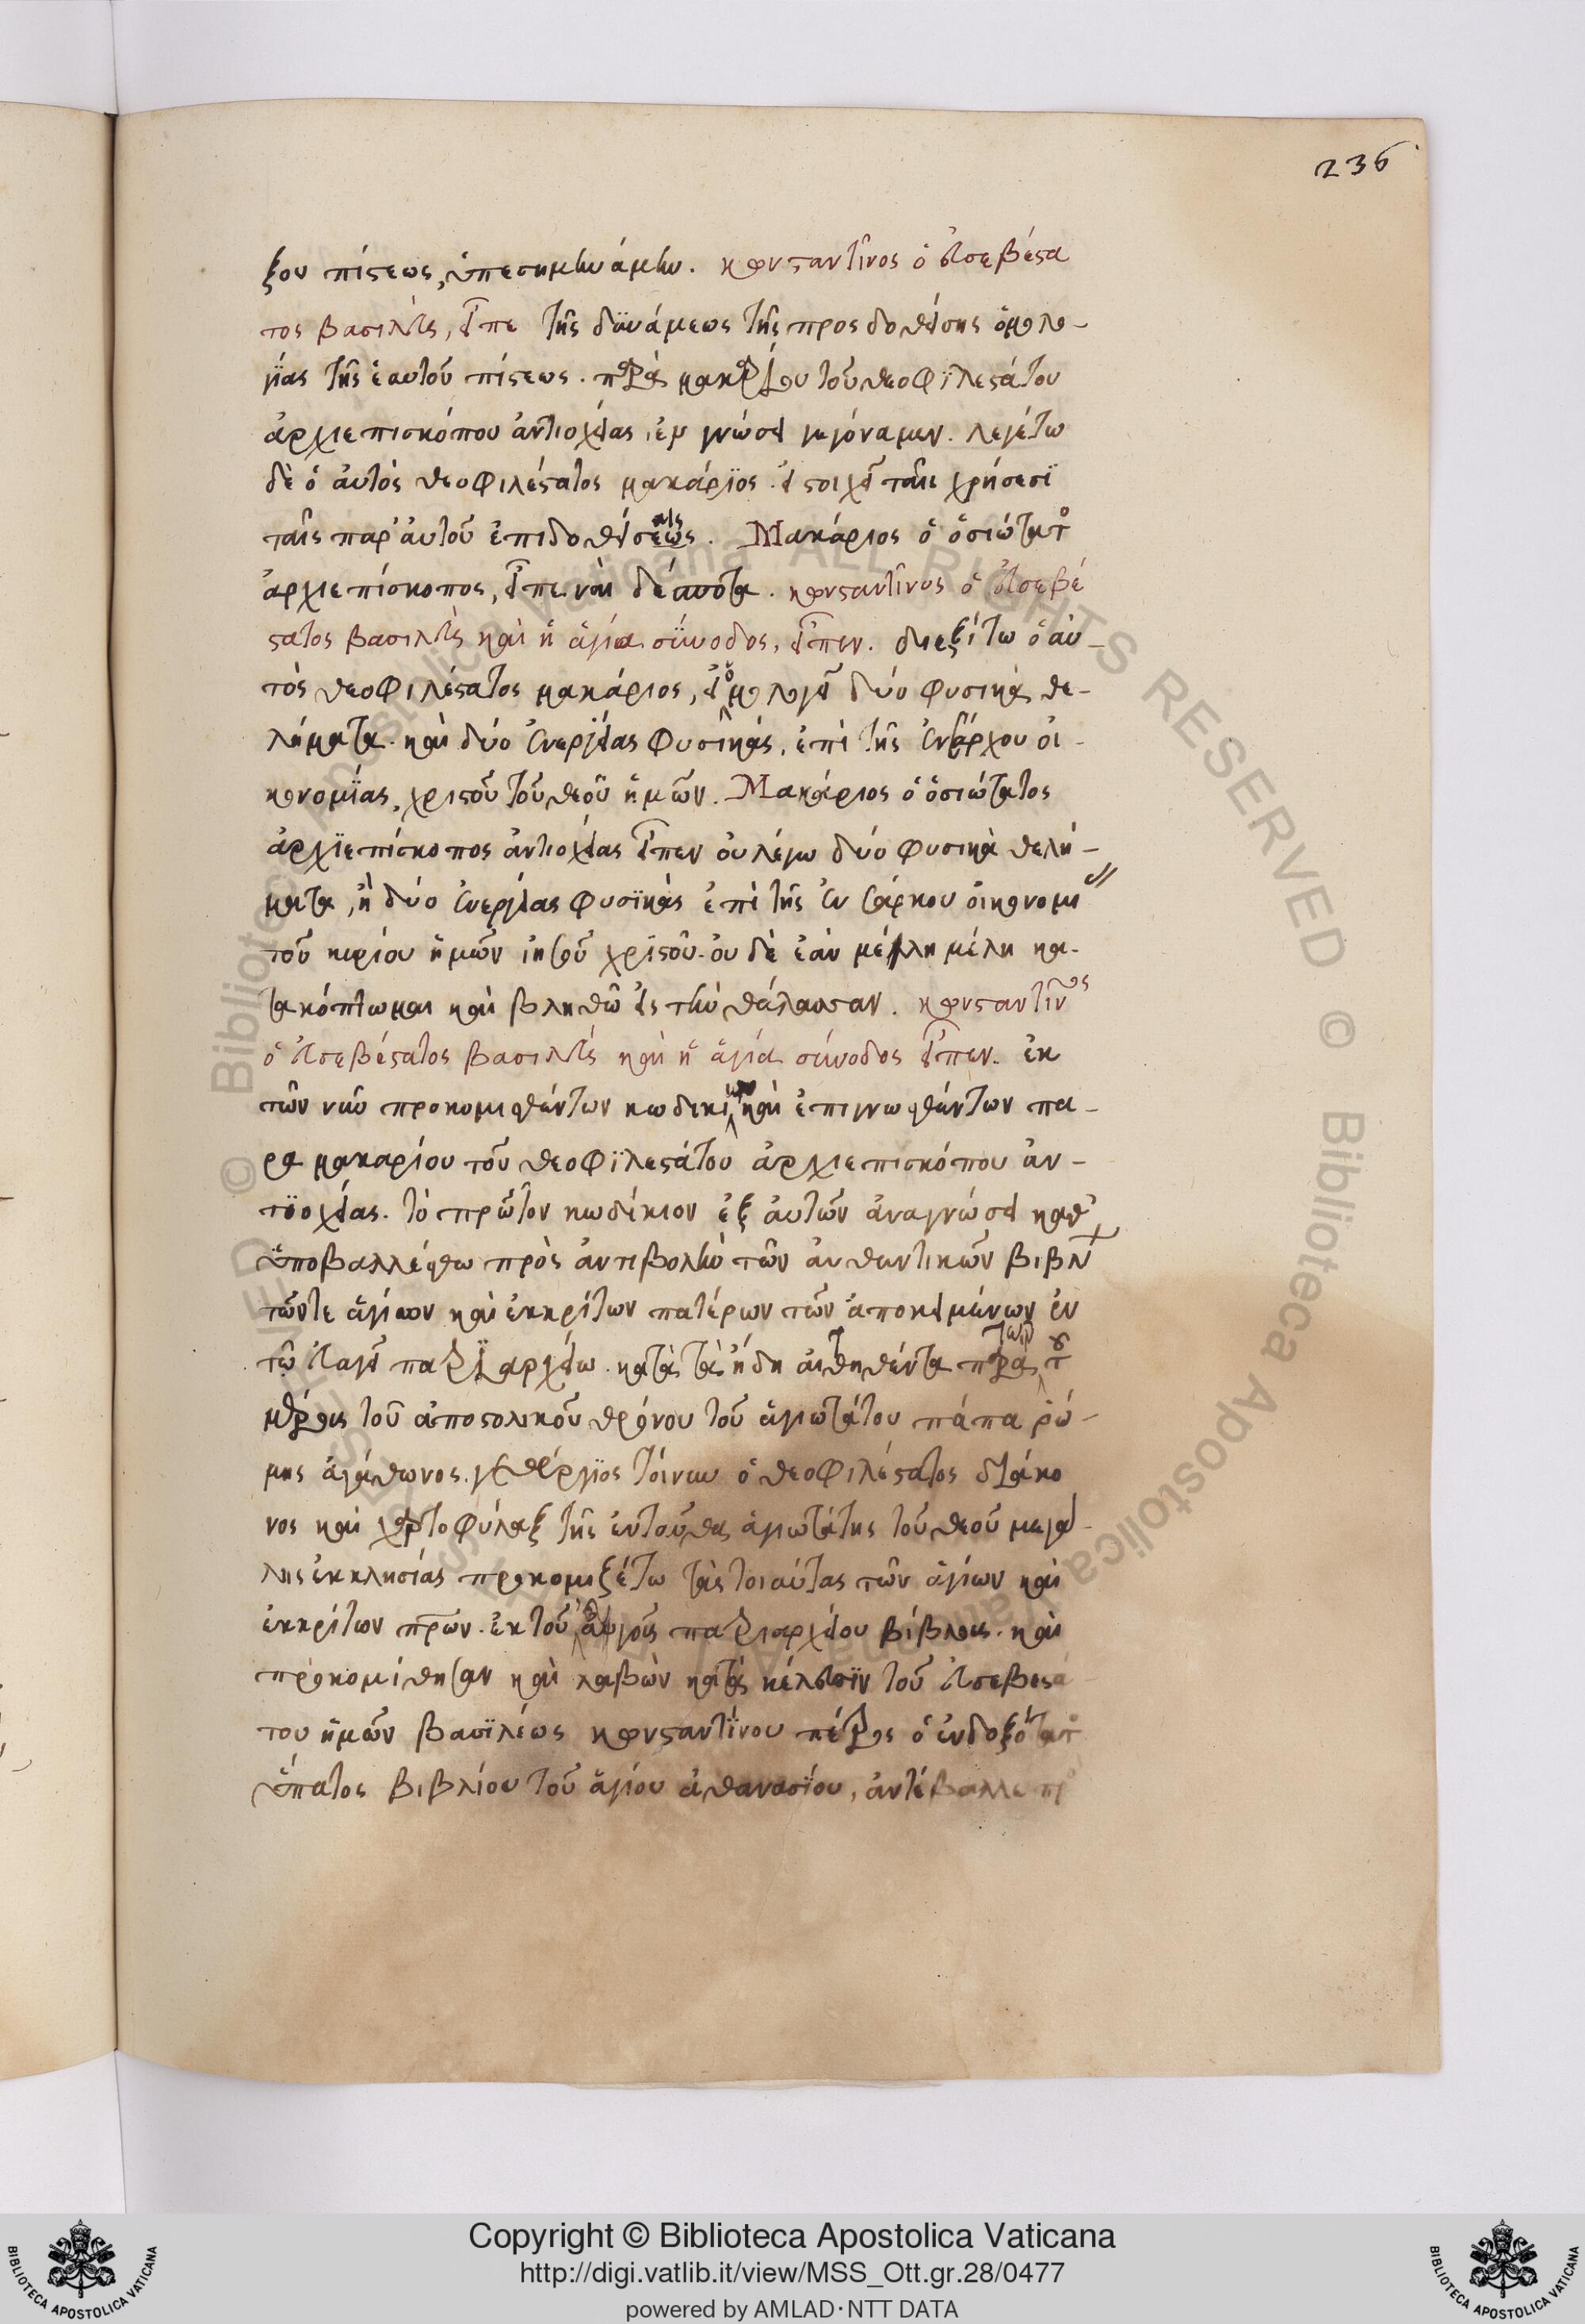 236
ξου πίστεως, ὑπεσημηνάμην. κωνσταντῖνος ὁ εὐσεβέστα
τος βασιλεὺς, εἶπε τῆς δϋνάμεως τῆς προσδοθείσης ὁμολο-
γίας τῆς ἑαυτοῦ πίστεως. παρὰ μακαρίου τοῦ θεοφϊλεστάτου
ἀρχιεπισκόπου ἀντιοχείας, ἐν γνώσει γεγόναμεν. λεγέτω
δὲ ὁ αὐτὸς θεοφιλέστατος μακάρϊος. εἰ στοιχεῖ ταῖς χρήσεσϊ
ταῖς παρ' αὐτοῦ ἐπιδοθείσεως αις. Μακάριος ὁ ὁσιώτατος
ἀρχιεπίσκοπος, εἶπε ναὶ δέσποτα. κωνσταντῖνος ὁ εὐσεβέ
στατος βασιλεὺς καὶ ἡ ἁγία σύνοδος, εἶπεν. διεξίτω ὁ αὐ-
τὸς θεοφιλέστατος μακάριος, εἰ ὁμολογεῖ δύο φυσικὰ θε-
λήματα. καὶ δύο ἐνεργείας φυσικὰς, ἐπὶ τῆς ἐνσάρκου οἰ-
κονομίας, χριστοῦ τοῦ θεοῦ ἡμῶν. Μακάριος ὁ ὁσιώτατος
ἀρχϊεπίσκοπος ἀντιοχείας εἶπεν οὐ λέγω δύο φυσικὰ θελή-
ματα, ἢ δύο ἐνεργείας φυσϊκὰς ἐπὶ τῆς ἐν σάρκου οἰκονομι
τοῦ κυρίου ἡμῶν ἰησοῦ χριστοῦ. οὐ δὲ ἐὰν μέλη μέλη κα-
τακόπτωμαι καὶ βληθῶ εἰς τὴν θάλασσαν. κωνσταντῖνος
ὁ εὐσεβέστατος βασιλεὺς καὶ ἡ ἁγία σύνοδος εἶπεν. ἐκ
τῶν νῦν προκομισθέντων κωδικίων καὶ ἐπιγνωσθέντων πα-
ρα μακαρίου τοῦ θεοφϊλεστάτου ἀρχιεπισκόπου ἀν-
τϊοχείας. τὸ πρῶτον κωδίκιον ἐξ αὐτῶν ἀναγνώσει καθ'
ὑποβαλλέσθω πρὸς ἀντιβολὴν τῶν αὐθεντικῶν βιβλ
τῶντε ἁγίων καὶ ἐκκρίτων πατέρων τῶν ἀποκειμένων ἐν
τῷ εὐαγεῖ πατρϊαρχείω. κατὰ τὰ ἤδη αἰτηθέντα παρὰ τῶν τοῦ
μέρους τοῦ ἀποστολικοῦ θρόνου τοῦ ἁγιωτάτου πάπα ῥώ-
μης ἀγάθωνος. γεώργϊος τοίνυν ὁ θεοφιλέστατος διάκο
νος καὶ χαρτοφύλαξ τῆς ἐνταῦθα ἁγιωτάτης τοῦ θεοῦ μεγά
λης ἐκκλησίας προκομιζέτω τὰς τοιαύτας τῶν ἁγίων καὶ
ἐκκρίτων πρων. ἐκ τοῦ εὐαγοῦς πατριαρχείου βίβλους. καὶ
προκομίσθησαν καὶ λαβὼν κατὰ κέλευσϊν τοῦ εὐσεβεστά
του ἡμῶν βασϊλέως κωνσταντίνου πέτρος ὁ ἐνδοξότατος
ὕπατος βιβλίου τοῦ ἁγίου ἀθανασϊου, ἀντέβαλλε
Copyright © Biblioteca Apostolica Vaticana
http://digi.vatlib.it/view/MSS_Ott.gr.28/0477
powered by AMLAD·NTT DATA
BIBLIOTECA APOSTOLICA VATICANA
BIBLIOTECA APOSTOLICA VATICANA